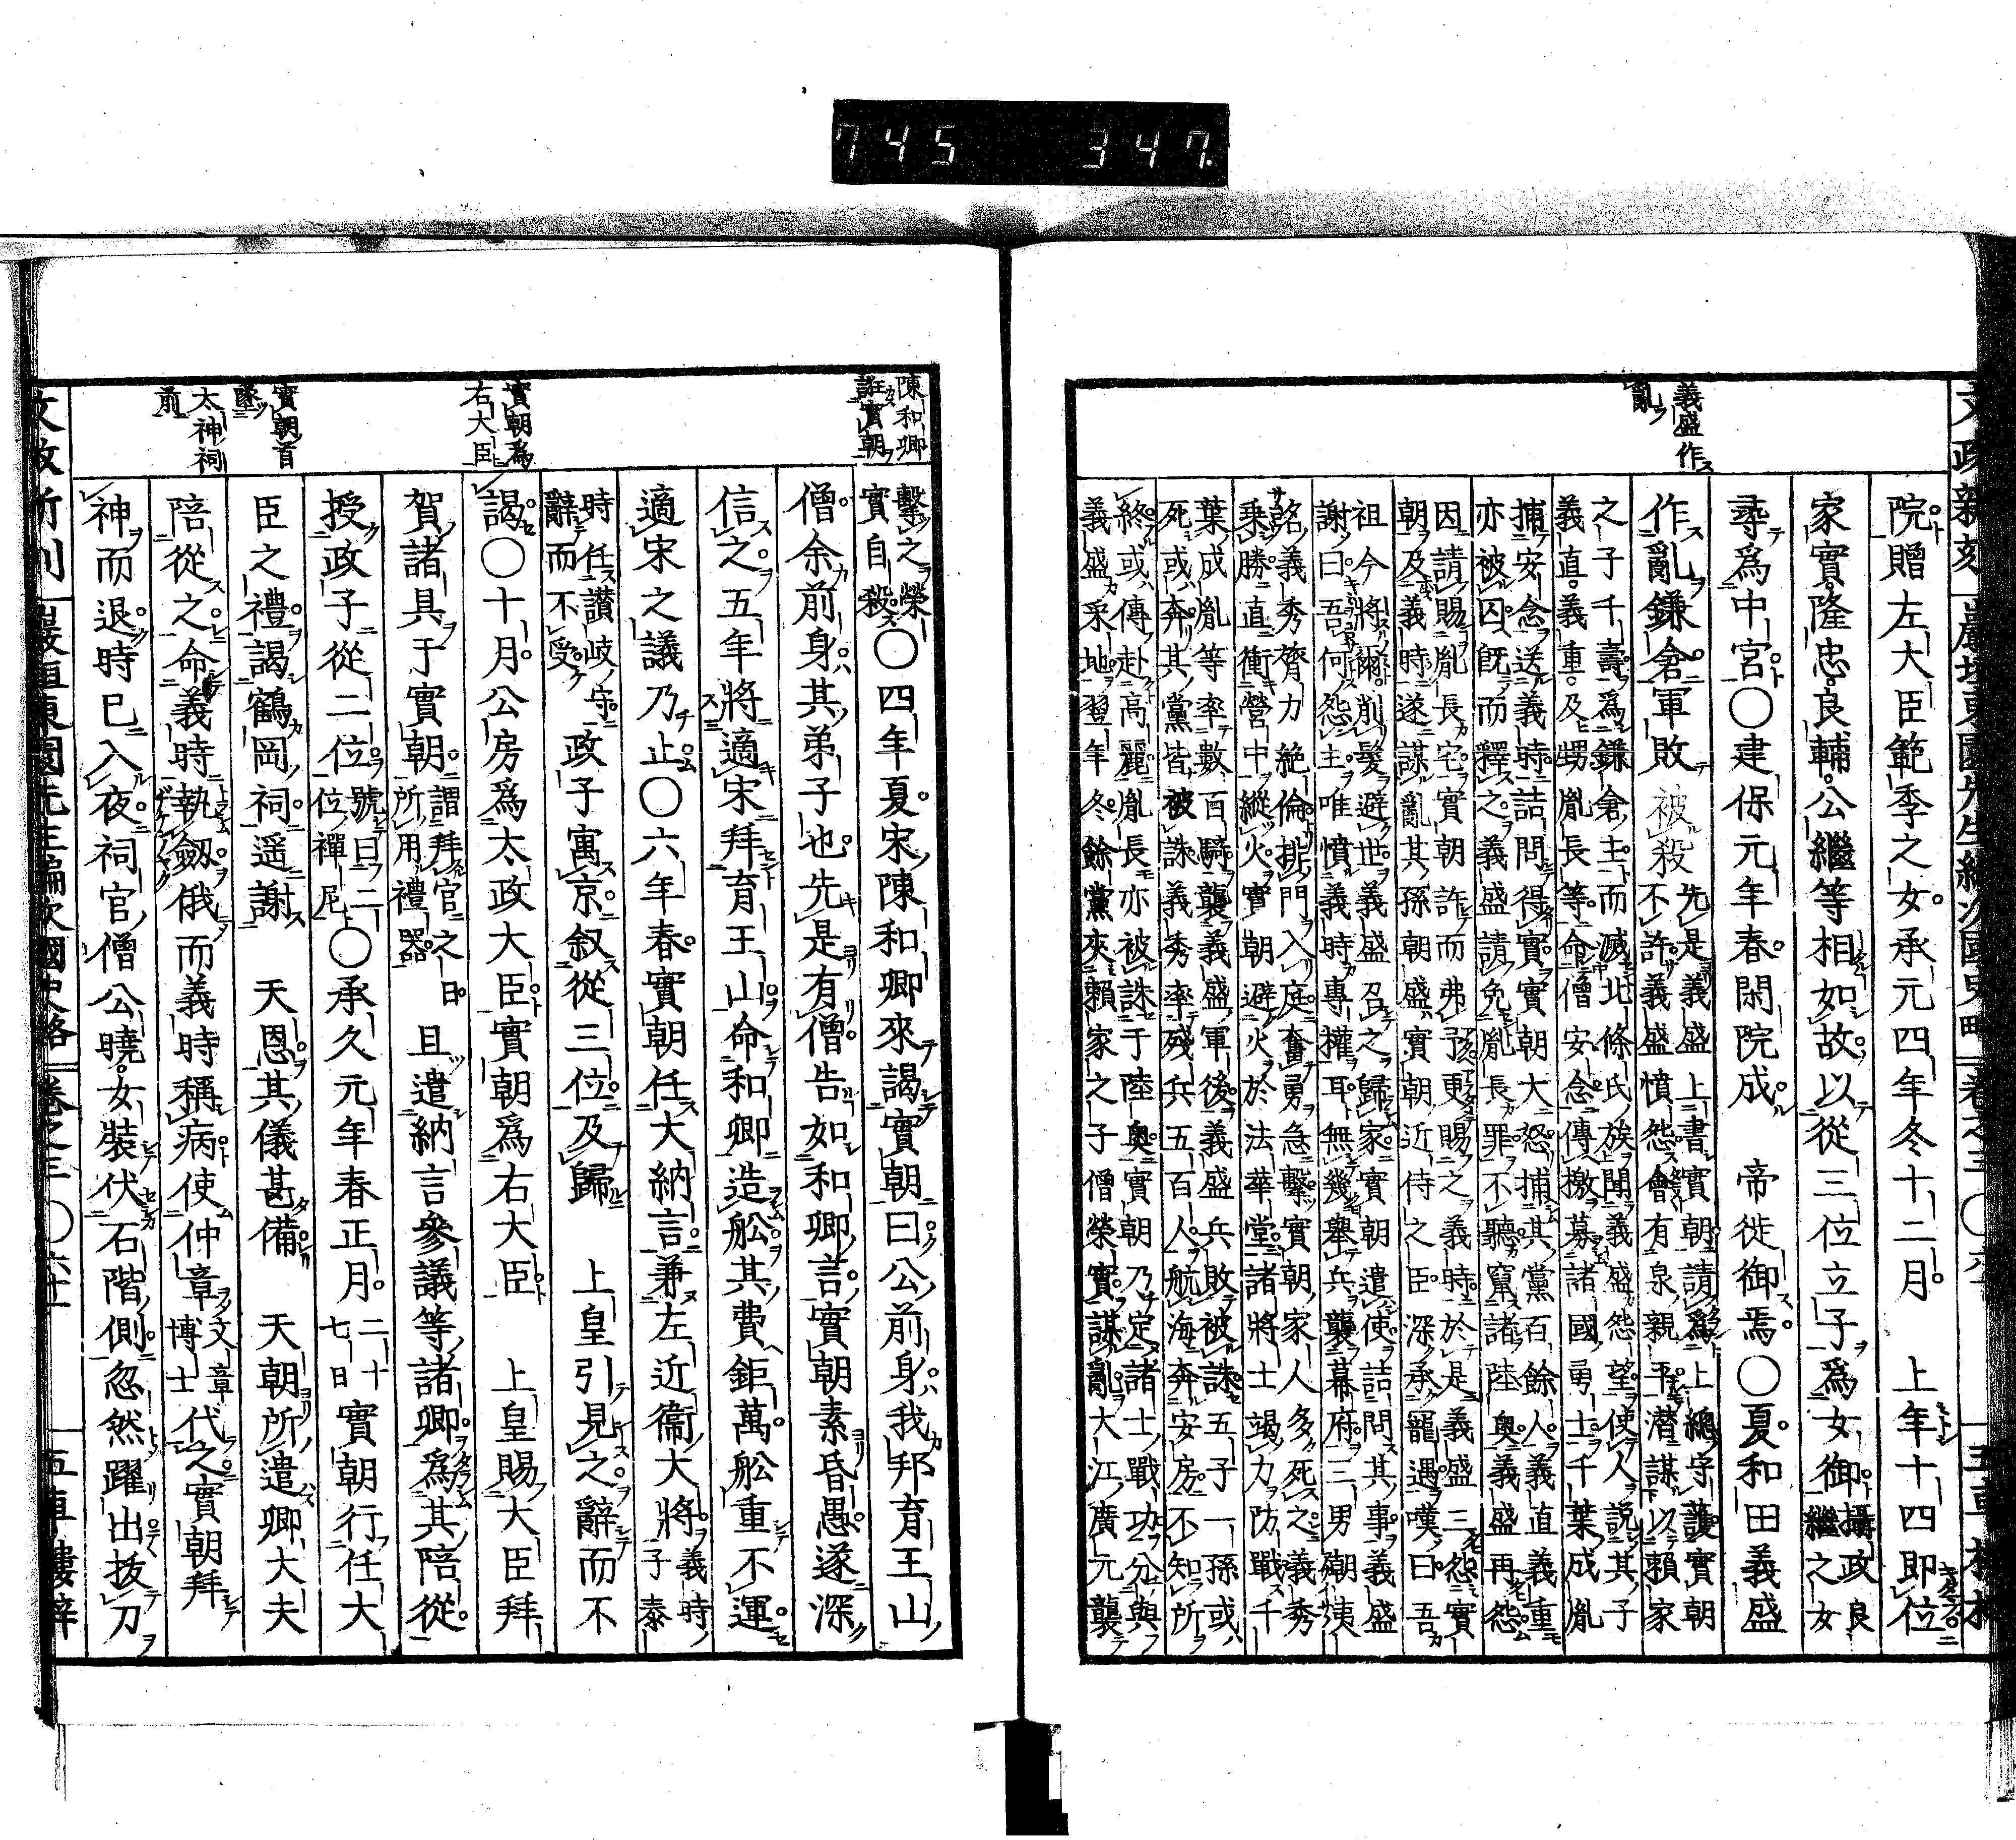 745 347.
文政新刻 巖垣東園先生編次國史略 卷之三 〇六十 五車樓梓
義盛作
亂
院贈左大臣範季之女承元四年冬十二月 上年十四即位
家實隆忠良輔公繼等相如故以從三位立子爲女御攝政良
繼之女
尋爲中宮〇建保元年春閑院成 帝徙御焉〇夏和田義盛
作亂鎌倉軍敗 被殺先是義盛上書實朝請爲上總守護實朝
不許義盛憤怨會有泉親平潛謀以賴家
之子千壽爲鎌倉主而滅北條氏族聞義盛怨望使人說其子
義直義重及甥胤長等命僧安念傳檄募諸國勇士千葉成胤
捕安念送義時詰問得實實朝大怒捕其黨百餘人義直義重
亦被囚既而釋之義盛請免胤長罪不聽竄諸陸奧義盛再怨
因請賜胤長宅實朝許而弗予更賜之義時於是義盛三怨實
朝及義時遂謀亂其孫朝盛實朝近侍之臣深承寵遇嘆曰吾
祖今將爾削髮避世義盛召之歸家實朝遣使詰問其事義盛
謝曰吾何怨主唯憤義時專權耳無幾舉兵襲幕府三男朝夷
名義秀膂力絶倫排門入庭奮勇急擊實朝家人多死之義秀
乘勝直衝營中縱火實朝避火於法華堂諸將士竭力防戰千
葉成胤等率數百騎襲義盛軍後義盛兵敗被誅五子一孫或
死或奔其黨皆被誅義秀率殘兵五百人航海奔安房不知所
終或傳赴高麗胤長亦被誅于陸奧實朝乃定諸士戰功分與
義盛采地翌年冬餘黨夾賴家之子僧榮實謀亂大江廣元襲
陳和卿
誑實朝
擊之榮
實自殺〇四年夏宋陳和卿來謁實朝曰公前身我邦育王山
僧余前身其弟子也先是有僧告如和卿言實朝素昏愚遂深
信之五年將適宋拜育王山命和卿造舩其費鉅萬舩重不運
適宋之議乃止〇六年春實朝任大納言兼左近衞大將義時
子泰
時任讃岐守
辭而不受 政子寓京叙從三位及歸 上皇引見之辭而不
實朝爲
右大臣
謁〇十月公房爲太政大臣實朝爲右大臣 上皇賜大臣拜
賀諸具于實朝謂拜官之日
所用禮器 且遣納言參議等諸卿爲其陪從
授政子從二位號曰二
位禪尼〇承久元年春正月二十
七日實朝行任大
實朝首
墜
臣之禮謁鶴岡祠遥謝 天恩其儀甚備 天朝所遣卿大夫
太神祠
前
陪從之命義時執劔俄而義時稱病使仲章文章
博士代之實朝拜
神而退時已入夜祠官僧公曉女裝伏石階側忽然躍出拔刀
文政新刻 巖垣東園先生編次國史略 卷之三 〇六十一 五車樓梓